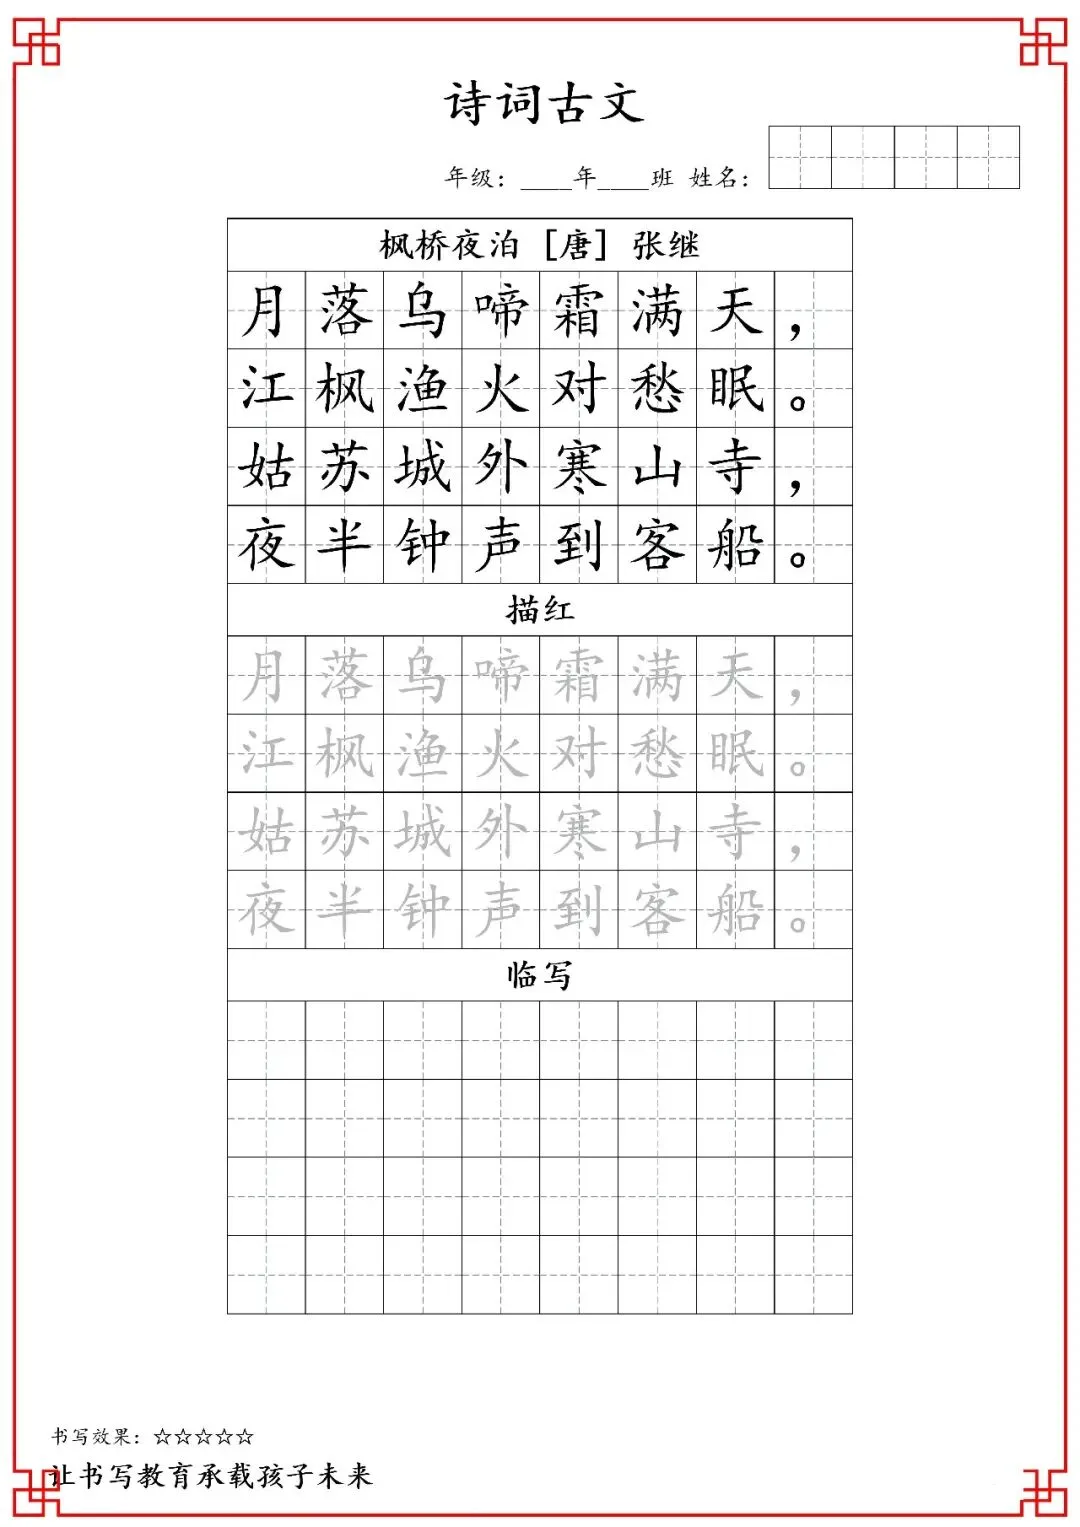 诗词古文
年级：____年____班 姓名：
枫桥夜泊［唐］张继
月落乌啼霜满天，
江枫渔火对愁眠。
姑苏城外寒山寺，
夜半钟声到客船。
描红
月落乌啼霜满天，
江枫渔火对愁眠。
姑苏城外寒山寺，
夜半钟声到客船。
临写
书写效果：☆☆☆☆☆
让书写教育承载孩子未来